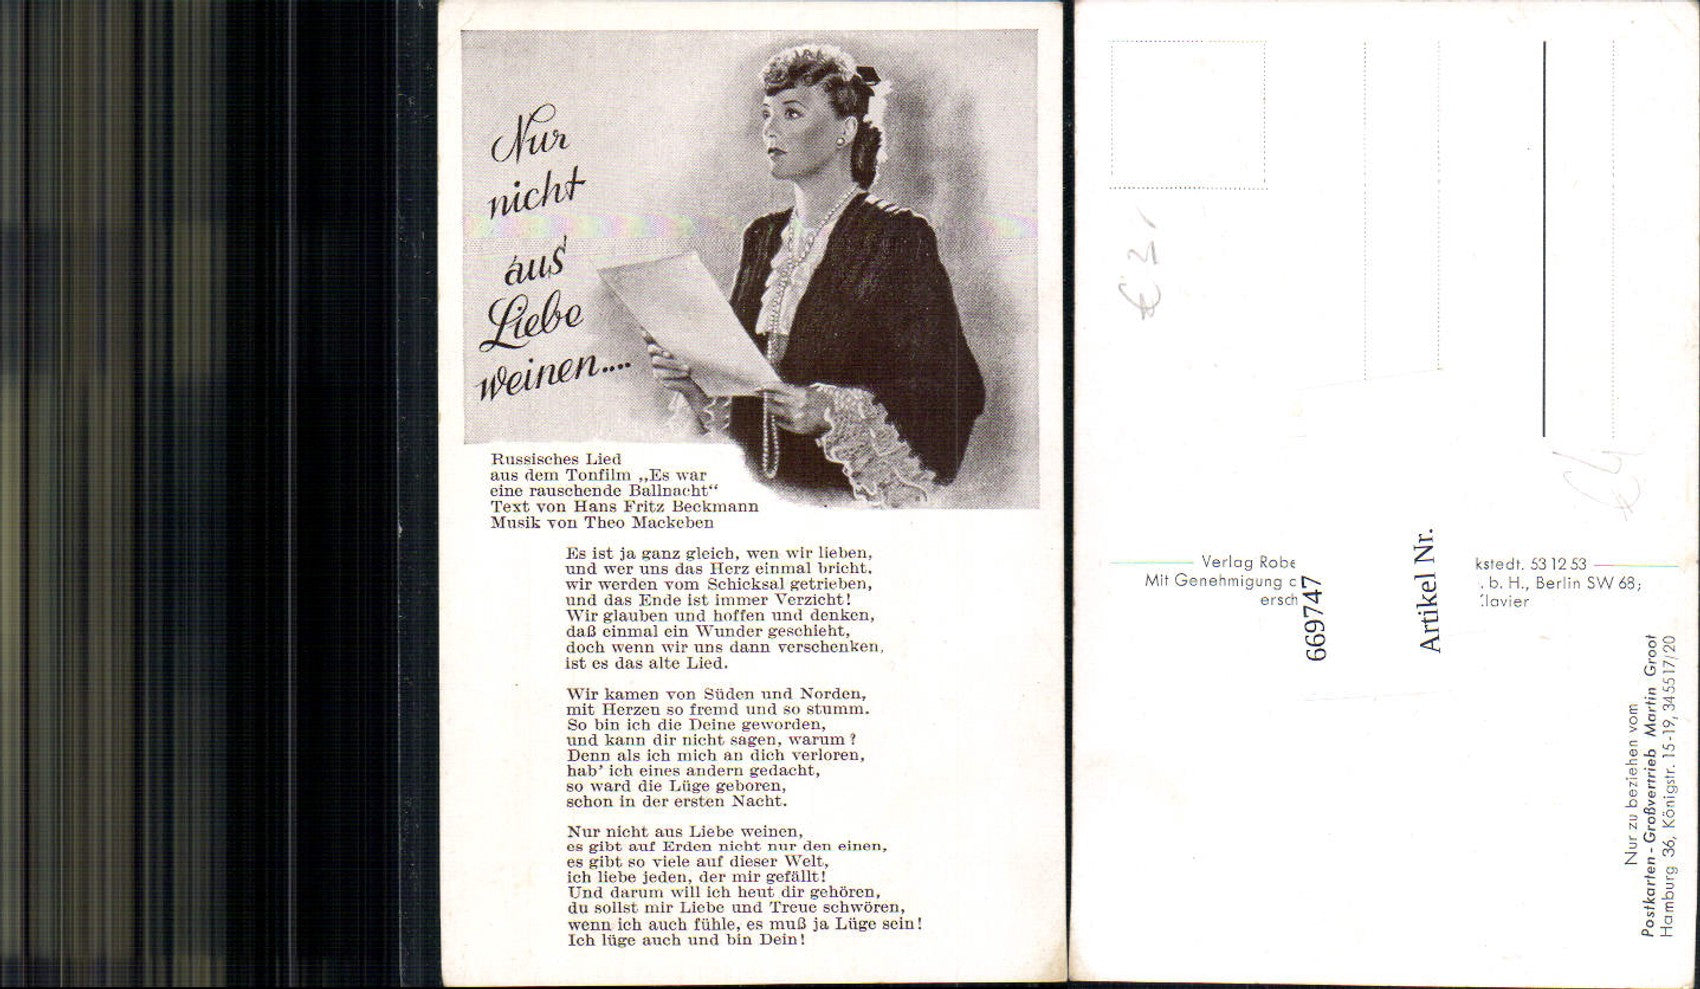 Nur
nicht
aus
Liebe
weinen....
Russisches Lied
aus dem Tonfilm „Es war
eine rauschende Ballnacht“
Text von Hans Fritz Beckmann
Musik von Theo Mackeben
Es ist ja ganz gleich, wen wir lieben,
und wer uns das Herz einmal bricht,
wir werden vom Schicksal getrieben,
und das Ende ist immer Verzicht!
Wir glauben und hoffen und denken,
daß einmal ein Wunder geschieht,
doch wenn wir uns dann verschenken,
ist es das alte Lied.
Wir kamen von Süden und Norden,
mit Herzen so fremd und so stumm.
So bin ich die Deine geworden,
und kann dir nicht sagen, warum?
Denn als ich mich an dich verloren,
hab’ ich eines andern gedacht,
so ward die Lüge geboren,
schon in der ersten Nacht.
Nur nicht aus Liebe weinen,
es gibt auf Erden nicht nur den einen,
es gibt so viele auf dieser Welt,
ich liebe jeden, der mir gefällt!
Und darum will ich heut dir gehören,
du sollst mir Liebe und Treue schwören,
wenn ich auch fühle, es muß ja Lüge sein!
Ich lüge auch und bin Dein!
€ 3,
Verlag Robe kstedt. 53 12 53
Mit Genehmigung . b. H., Berlin SW 68;
ersch lavier
669747
Artikel Nr.
Nur zu beziehen vom
Postkarten-Großvertrieb Martin Groot
Hamburg 36, Königstr. 15-19, 345517/20